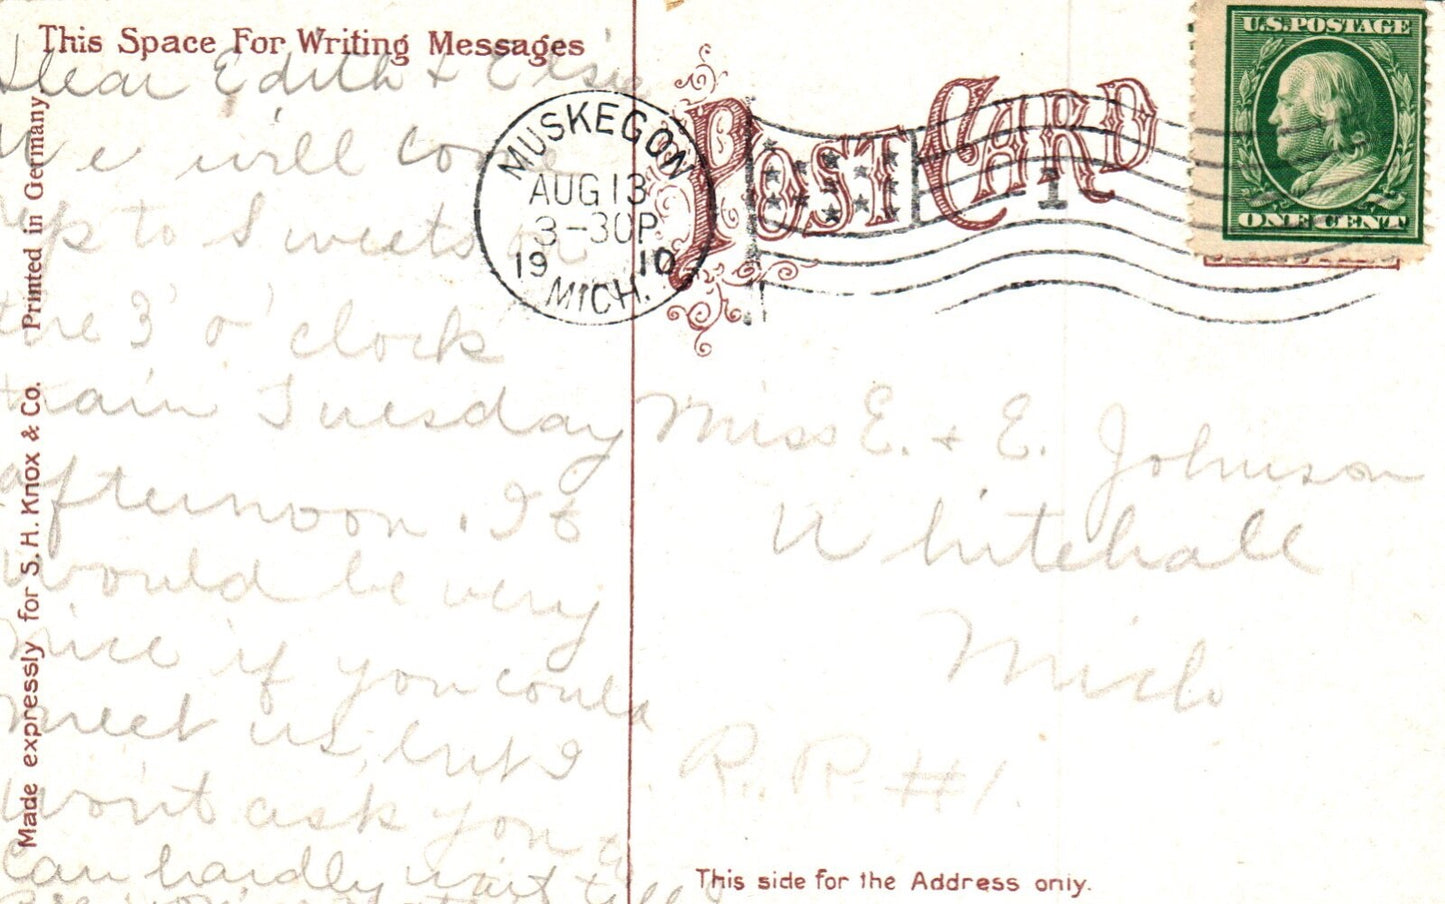 This Space For Writing Messages
Dear Edith & Elsie
We will come
up to Sweets on
the 3 o'clock
train Tuesday
afternoon. It
would be very
nice if you could
meet us, but I
won't ask you to
Can hardly wait till
Made expressly for S. H. Knox & Co. Printed in Germany
MUSKEGON
AUG 13
3-30P
1910
MICH.
POST CARD
1
U.S. POSTAGE
ONE CENT
Miss E. & E. Johnson
Whitehall
Mich.
R. R. #1.
This side for the Address only.